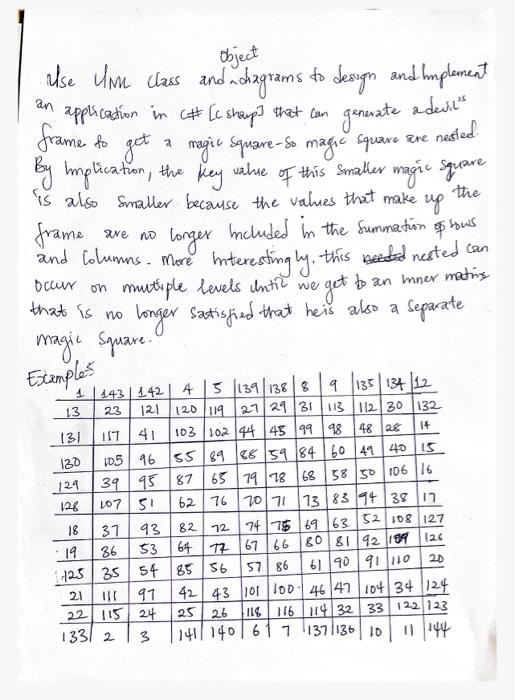 object
Use UML class and diagrams to design and Implement
an application in C# [C sharp] that can generate a devil's
frame to get a magic square-so magic square are nested.
By Implication, the key value of this smaller magic square
is also smaller because the values that make up the
frame are no longer Included in the summation of rows
and columns. More Interestingly, this needed nested can
occur on multiple levels until we get to an Inner matrix
that is no longer satisfied that he is also a separate
magic square.
Examples
1 143 142 4 5 139 138 8 9 135 134 12
13 23 121 120 119 27 29 31 113 112 30 132
131 117 41 103 102 44 45 99 98 48 28 14
130 105 96 55 89 88 59 84 60 49 40 15
129 39 95 87 65 79 78 68 58 50 106 16
128 107 51 62 76 70 71 73 83 94 38 17
18 37 93 82 72 74 75 69 63 52 108 127
19 36 53 64 77 67 66 80 81 92 109 126
125 35 54 85 56 57 86 61 90 91 110 20
21 111 97 42 43 101 100 46 47 104 34 124
22 115 24 25 26 118 116 114 32 33 122 123
133 2 3 141 140 6 7 137 136 10 11 144